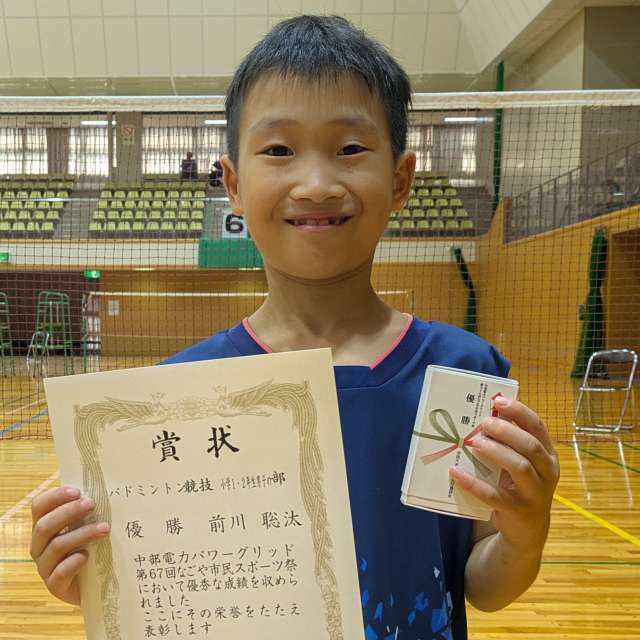 6
賞状
バドミントン競技 小学1・2年生男子の部
優勝 前川 聡汰
中部電力パワーグリッド
第67回なごや市民スポーツ祭
において優秀な成績を収めら
れました
ここにその栄誉をたたえ
表彰します
優勝